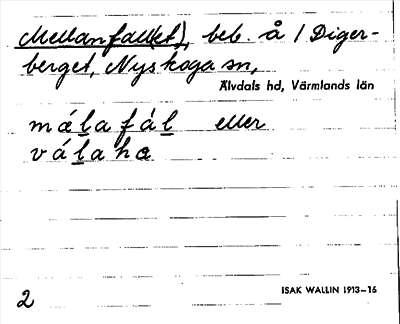 Mellanfall(et), beb. å / Diger-
berget, Nyskoga sn,
Älvdals hd, Värmlands län
málafál eller
válaha
2
ISAK WALLIN 1913–16